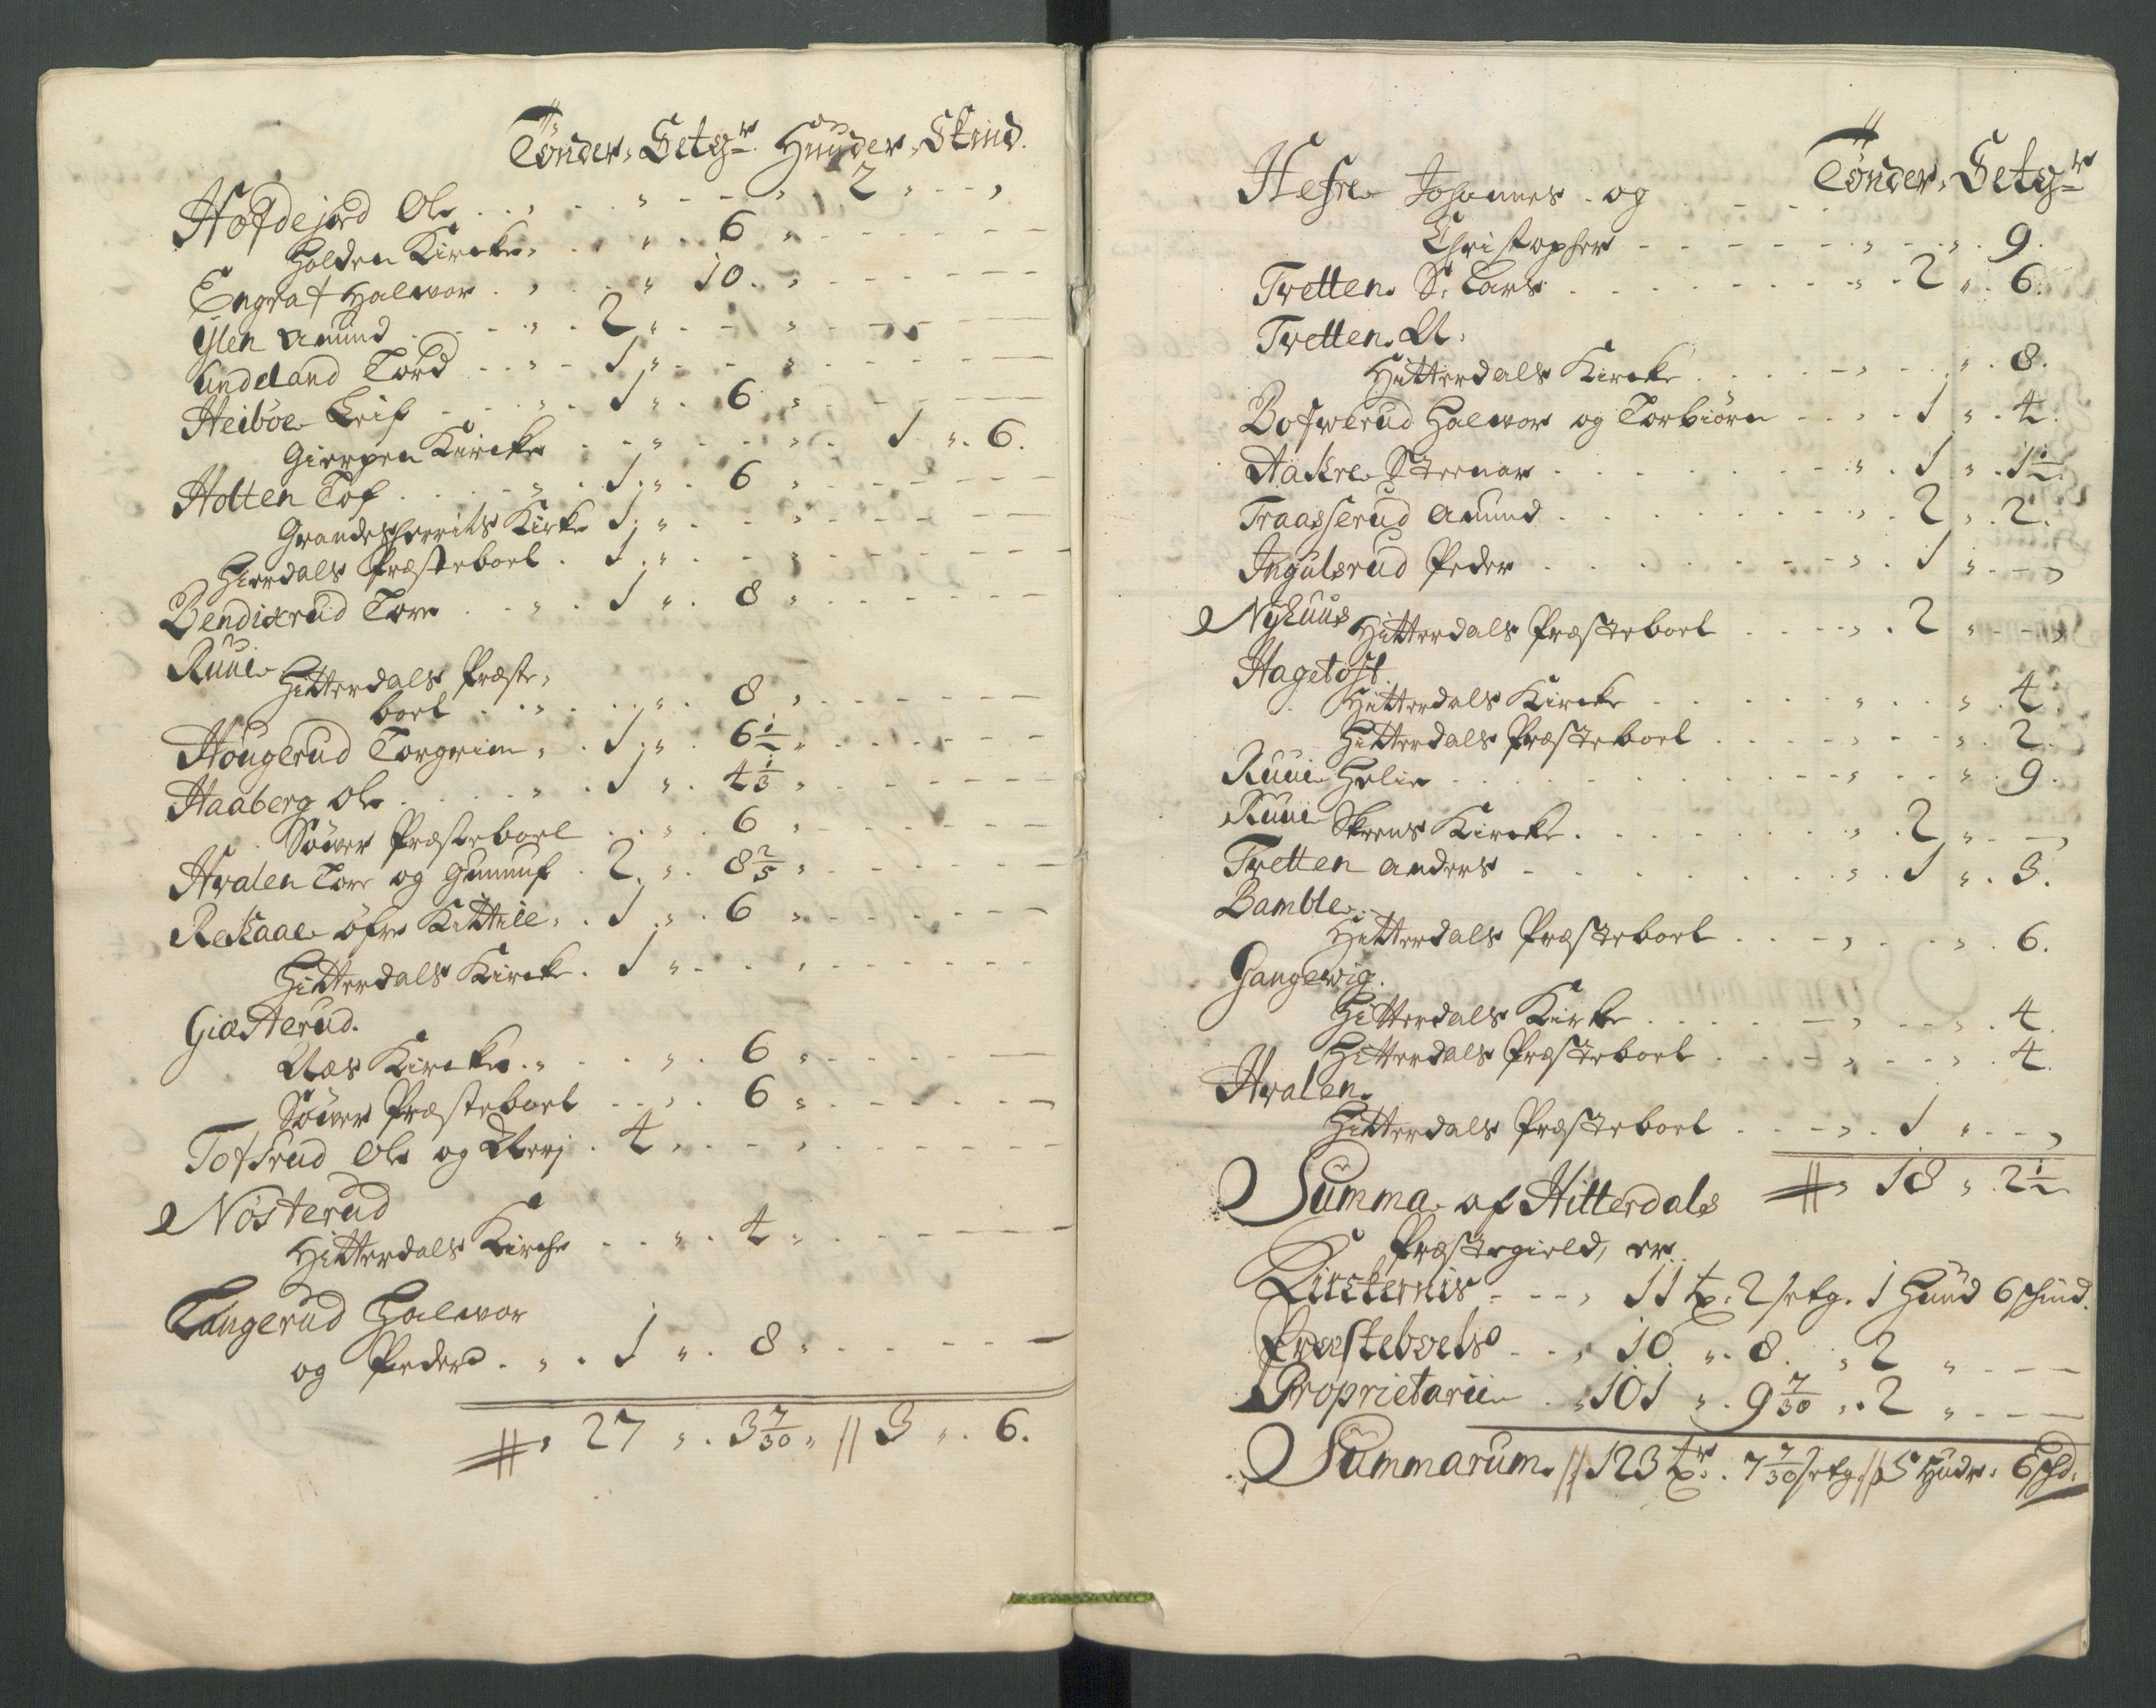 Tønder, Setg.r Huuder, Skind.
Hofdejord Ole . . . , . . . " - - - , 2 , - - ,
Holden Kircke, . . . " . 6 "
Engraf Halvor . , . . . " 10. "
Ylen Amund . . . . " . 2 "
Lundeland Tord . . " . 1 "
Heiböe Leif . . . " . 1 " . 6 "
Gierpen Kircke . . . " . . . " . 1 " . 6.
Holten Tof . . . . " . 1 " . 6 "
Grandesherrits Kirke 1 "
Hierdals Præsteboel . 1 "
Bendixrud Tore . . " . 1 " . 8 "
Ruui Hitterdals Præste,
boel . . . " . . . " . 8 "
Hougerud Torgrim , . 1 " . 6 1/2 "
Haaberg Ole . . . . " . 1 " . 4 1/3 "
Söuer Præsteboel . . " . 6 "
Hvalen Tore og Gunnuf . 2. " . 8 2/5 "
Rekaae öfre Kittile, . 1 " . 6 "
Hitterdals Kircke . 1 "
Giæsterud.
Næs Kircke . " . . . " . 6 "
Söuer Præsteboel . . " . 6 "
Tofsrud Ole og . 4 "
Nösterud
Hitterdals Kirche . . . " . 4 "
Tangerud Halvor
og Peder . . " . 1 " . 8 "
" 27 " . 3 7/30 " // 3 " . 6.
Tønder, Setg.r
Hefre Johannes . og . . -
Christopher - - - - - - " - . " . 9.
Tvetten. S. Lars . . . . . . . . " . 2 " . 6.
Tvetten. N.
Hitterdals Kircke . . . . - , . . . " . 8.
Bofwerud Halvor og Torbiörn - - . , . 1 " . 4.
Aakre. Steenar . . . . . . . . " . 1 " . 1 1/2
Traasserud Amund . . . . . . . " . 2 " . 2.
Ingulsrud Peder . . . . . . . - , . 1 " . - ,
Nyhuus Hitterdals Præsteboel . . . - , . 2 " . - ,
Hagetoft.
Hitterdals Kircke . . . . . " . . . " . 4.
Hitterdals Præsteboel . . . . . , - . " . 2.
Ruui Helie . . . . . . . . . - " . . - " . 9.
Ruui Skeens Kircke . . . . . . . " . 2 " . — ,
Tvetten Anders - . . . . . . . " . 1 " . 3.
Bamble.
Hitterdals Præsteboel . . . - , . . . " . 6.
Gangewig.
Hitterdals Kirke . . . . — , - - . " . 4.
Hitterdals Præsteboel . . . - " . . . " . 4.
Hvalen.
Hitterdals Præsteboel . . . . - , . 1 " . - ,
Summa. af Hitterdals " 18 " . 2 1/2
Præstegield, er.
Kirckernis - - - , 11 tr. 2 setg. 1 Huud 6 Skind.
Præsteboels - - , 10 " . 8. " 2 "
Proprietarii . " 101 " . 9 7/30 " . 2 "
Summarum. // 123 tr. . 7 7/30 setg. // 5 Hudr. 6 Skd.